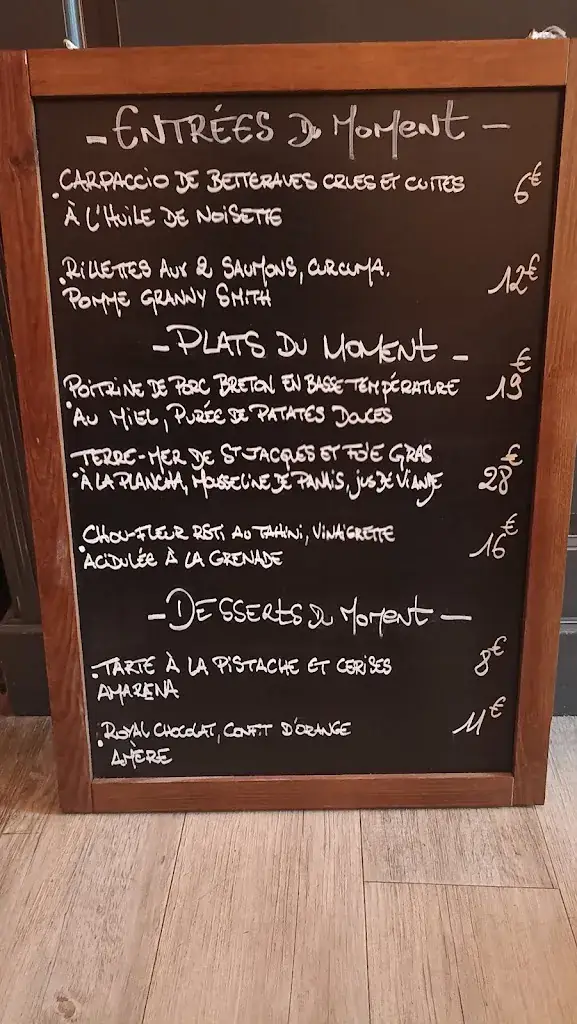 - ENTRÉES DU MOMENT -
. CARPACCIO DE BETTERAVES CRUES ET CUITES 6€
À L'HUILE DE NOISETTE
. RILLETTES AUX 2 SAUMONS, CURCUMA. 12€
POMME GRANNY SMITH
- PLATS DU MOMENT -
POITRINE DE PORC BRETON EN BASSE TEMPÉRATURE 19€
. AU MIEL, PURÉE DE PATATES DOUCES
TERRE-MER DE ST JACQUES ET FOIE GRAS 28€
. À LA PLANCHA, MOUSSELINE DE PANAIS, JUS DE VIANDE
CHOU-FLEUR RÔTI AU TAHINI, VINAIGRETTE 16€
. ACIDULÉE À LA GRENADE
- DESSERTS DU MOMENT -
. TARTE À LA PISTACHE ET CERISES 8€
AMARENA
. ROYAL CHOCOLAT, CONFIT D'ORANGE 11€
AMÈRE